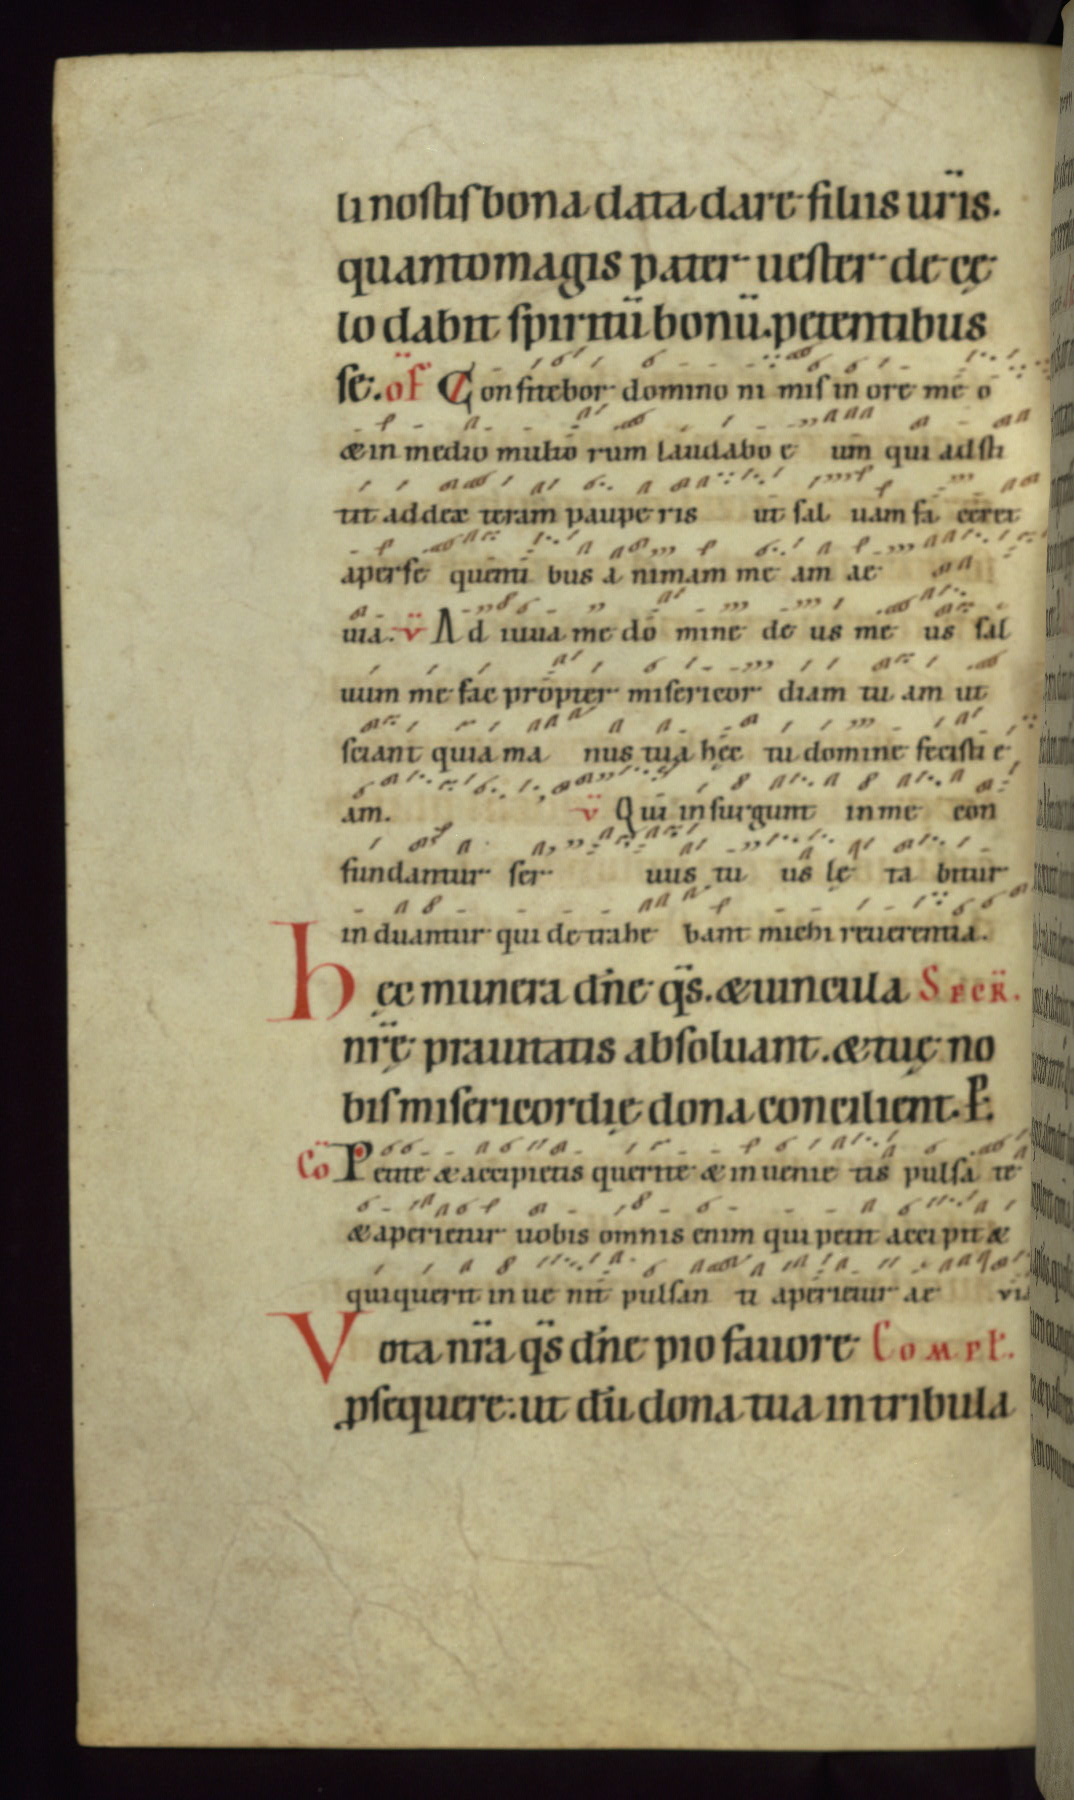 li nostis bona data dare filiis ur̄is.
quanto magis pater uester de cę
lo dabit spiritū bonū. petentibus
se. OF Confitebor domino ni mis in ore me o
& in medio multo rum laudabo e um qui adsti
tit ad dex teram paupe ris ut sal uam fa ceret
a perse quenti bus a nimam me am ae
uia. V Ad iuua me do mine de us me us sal
uum me fac propter misericor diam tu am ut
sciant quia ma nus tua hęc tu domine fecisti e
am. V Qui insurgunt in me con
fundantur ser uus tu us lę ta bitur
induantur qui detrahe bant michi reuerentia.
Hęc munera dn̄e q̄s. & uincula SECR̄.
nr̄ę prauitatis absoluant. & tuę no
bis misericordię dona concilient. P.
Cō Petite & accipietis querite & inuenie tis pulsa te
& aperietur uobis omnis enim qui petit acci pit &
qui querit inue nit pulsan ti aperietur ae via
Vota nr̄a q̄s dn̄e pio fauore COMPL̄.
ꝓsequere. ut dū dona tua in tribula